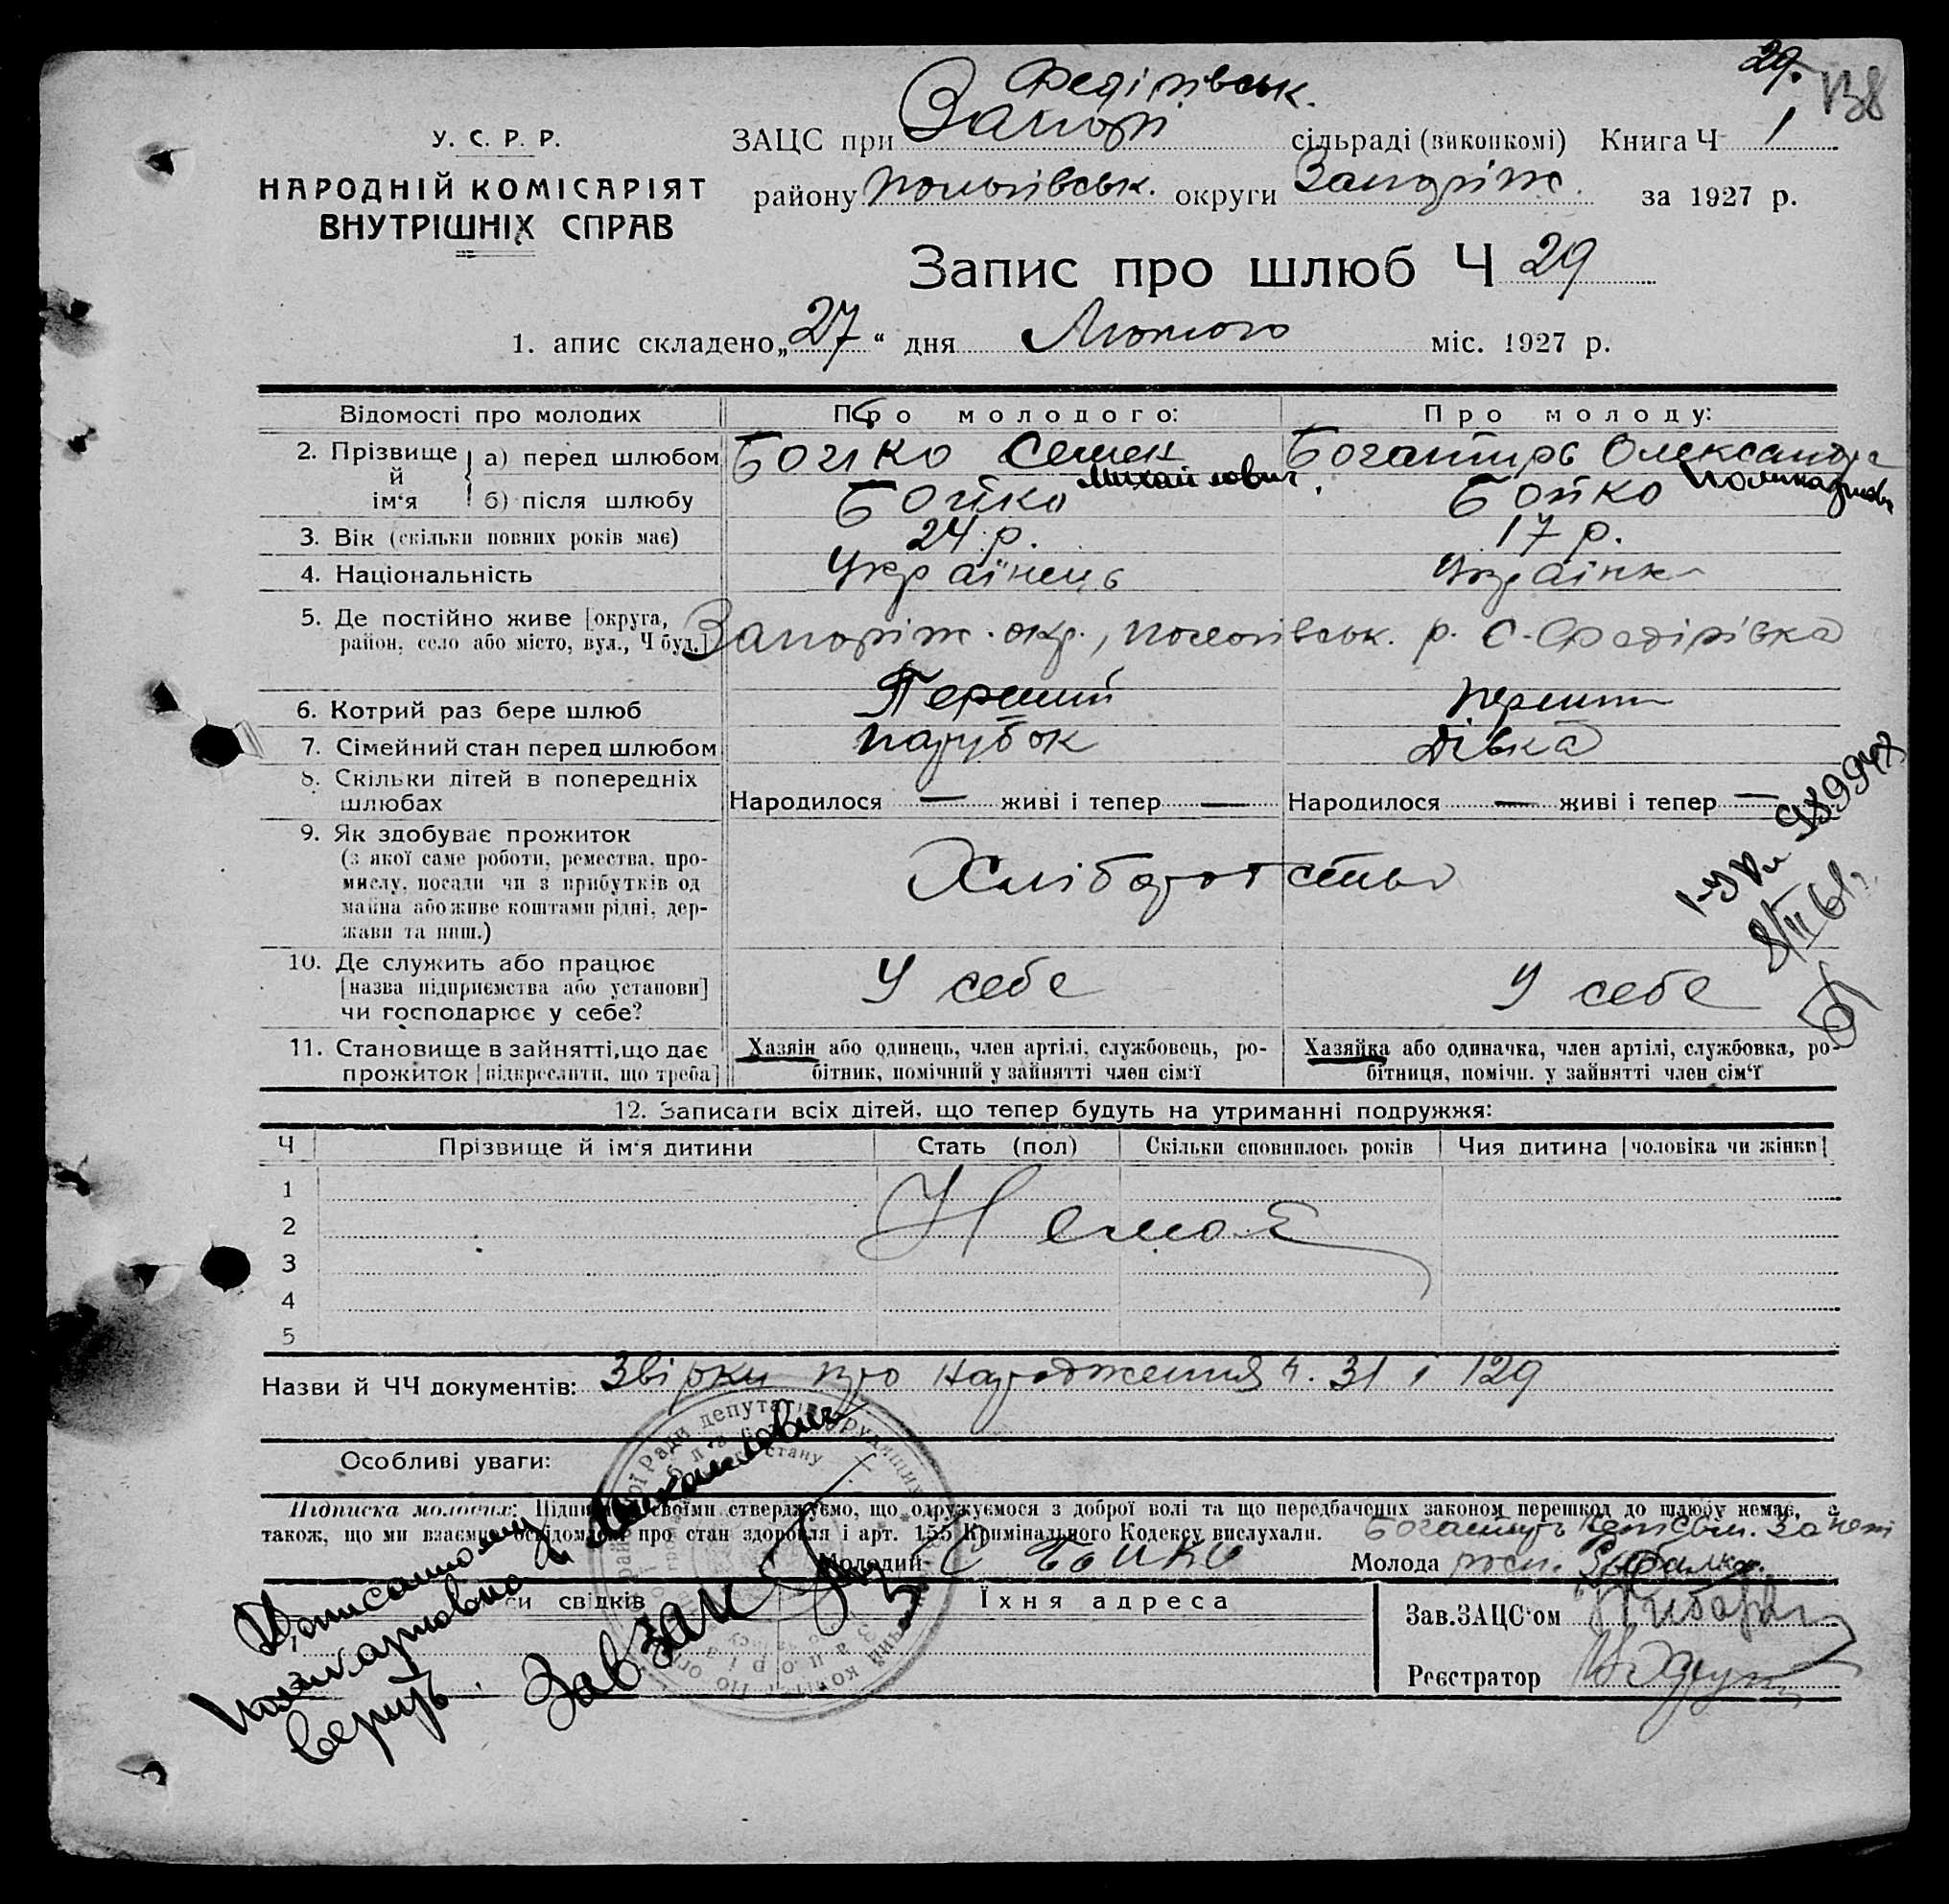 29. 138
Федірівськ.
У. С. Р. Р.
НАРОДНІЙ КОМІСАРІЯТ
ВНУТРІШНІХ СПРАВ
ЗАЦС при Запорі сільраді (виконкомі) Книга Ч 1
району Пологівськ. округи Запоріж. за 1927 р.
Запис про шлюб Ч 29
1. апис складено „27“ дня Лютого міс. 1927 р.
Відомості про молодих Про молодого: Про молоду:
2. Прізвище й ім‘я а) перед шлюбом Бойко Семен Михайлович Богатирь Олександра
б) після шлюбу Бойко Бойко
3. Вік (скільки повних років має) 24 р. 17 р.
4. Національність Українець Українка
5. Де постійно живе [округа, район, село або місто, вул., Ч буд.] Запоріж. окр., Пологівськ. р. с. Федірівка
6. Котрий раз бере шлюб Перший перший
7. Сімейний стан перед шлюбом парубок дівка
8. Скільки дітей в попередніх шлюбах Народилося — живі і тепер — Народилося — живі і тепер —
9. Як здобуває прожиток
(з якої саме роботи, ремества, про-
мислу, посади чи з прибутків од
майна або живе коштами рідні, дер-
жави та инш.)
Хліборобство
10. Де служить або працює
[назва підприємства або установи]
чи господарює у себе?
У себе У себе
11. Становище в зайнятті, що дає
прожиток [підкреслити, що треба]
Хазяїн або одинець, член артілі, службовець, ро-
бітник, помічний у зайнятті член сім‘ї
Хазяйка або одиначка, член артілі, службовка, ро-
бітниця, помічн. у зайнятті член сім‘ї
12. Записати всіх дітей, що тепер будуть на утриманні подружжя:
Ч Прізвище й ім‘я дитини Стать (пол) Скільки сповнилось років Чия дитина [чоловіка чи жінки]
1
2 Немає
3
4
5
Назви й ЧЧ документів: Звірки про народження ч. 31 і 129
Особливі уваги:
Підписка молодих: Підписами своїми стверджуємо, що одружуємося з доброї волі та що передбачених законом перешкод до шлюбу немає, а
також, що ми взаємно освідомлені про стан здоров‘я і арт. 155 Кримінального Кодексу вислухали.
Молодий С Бойко Молода
свідків Їхня адреса Зав.ЗАЦС‘ом
Реєстратор
Дописаному Михайлович
и Поликарповна
верить.
Зав ЗАГС